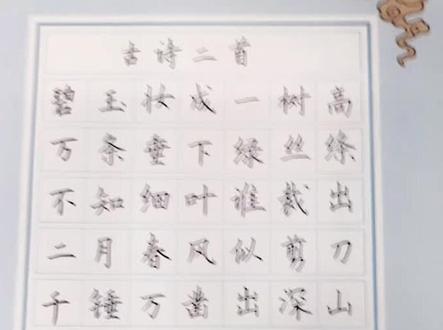 古诗二首
碧玉妆成一树高
万条垂下绿丝绦
不知细叶谁裁出
二月春风似剪刀
千锤万凿出深山